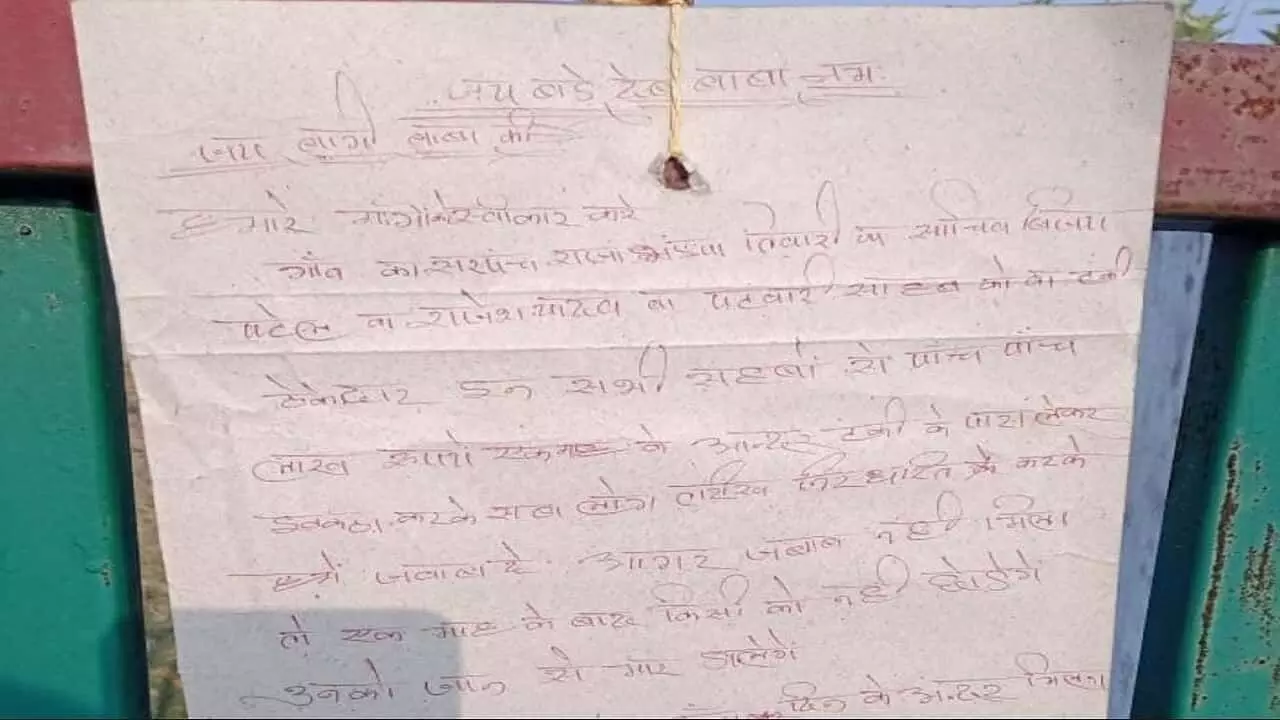 जय बाडे देव बाबा नम:
जय बागी बाबा की
हमारे मांगो को स्वीकार करे
गाँव का सरपंच राजा तिवारी व सचिव विजय
पटेल व राजेश यादव व पटवारी साहब को व टंकी
ठेकेदार इन सभी साहबों से पांच पांच
लाख रूपये एक माह के अन्दर टंकी के पास लेकर
इकठठा करके सब लोग तारीख निरधारित करके
हमें जवाब दे आगर जबाब नही मिला
तो एक माह के बाद किसी को नही छोडेगे
उनको जान से मार डालेगें
दिन के अन्दर मिलना